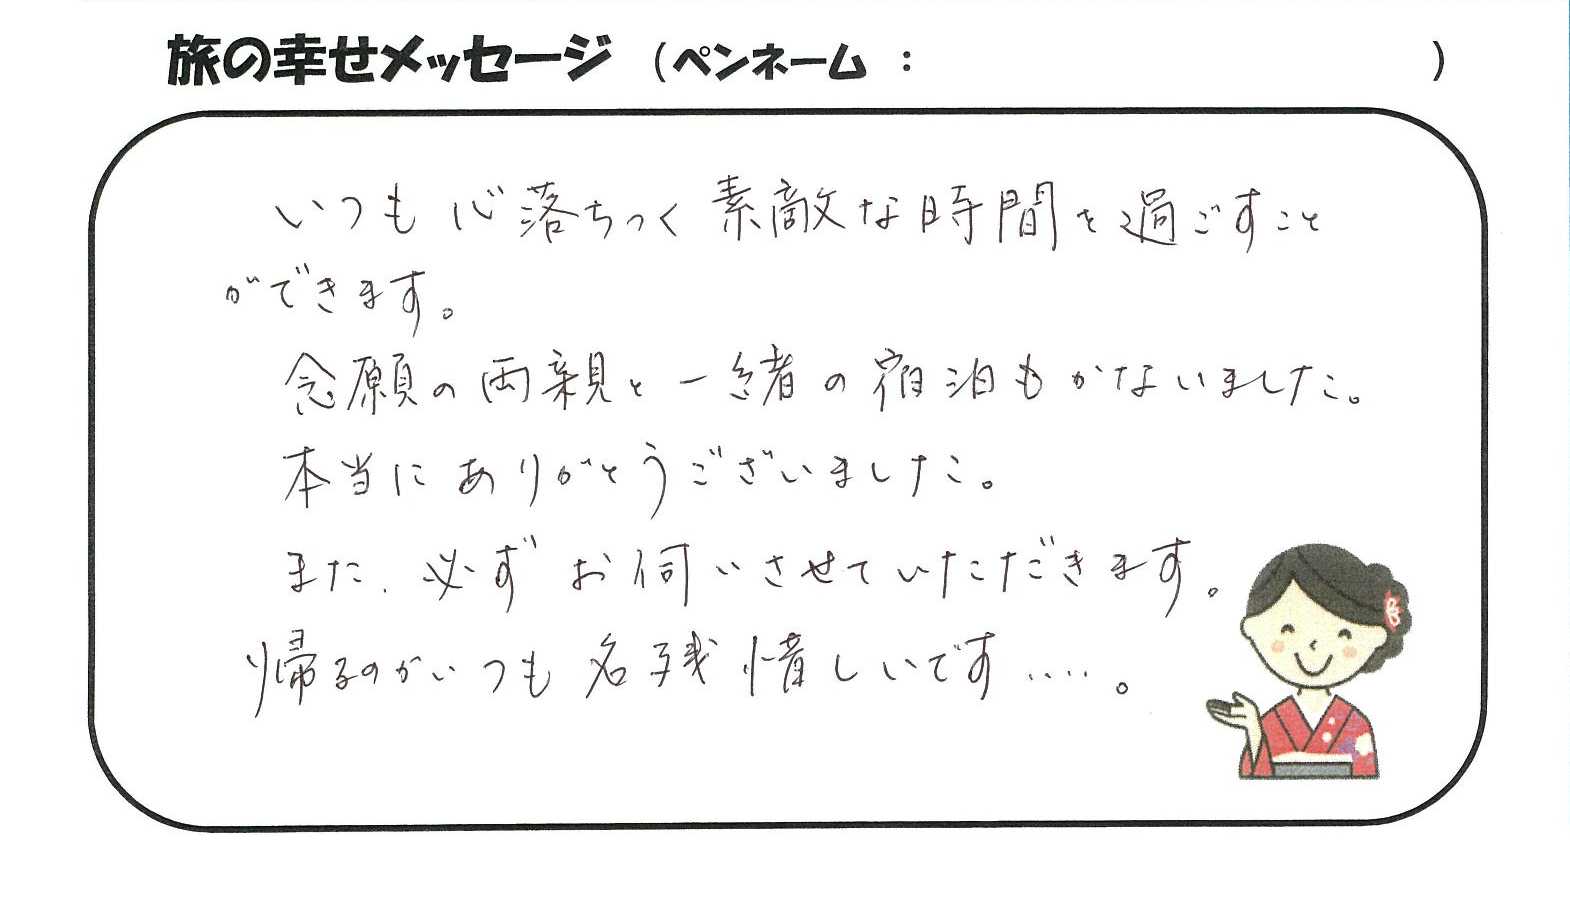 旅の幸せメッセージ （ペンネーム ： ）
いつも心落ちつく素敵な時間を過ごすこと
ができます。
念願の両親と一緒の宿泊もかないました。
本当にありがとうございました。
また、必ずお伺いさせていただきます。
帰るのがいつも名残惜しいです‥‥。